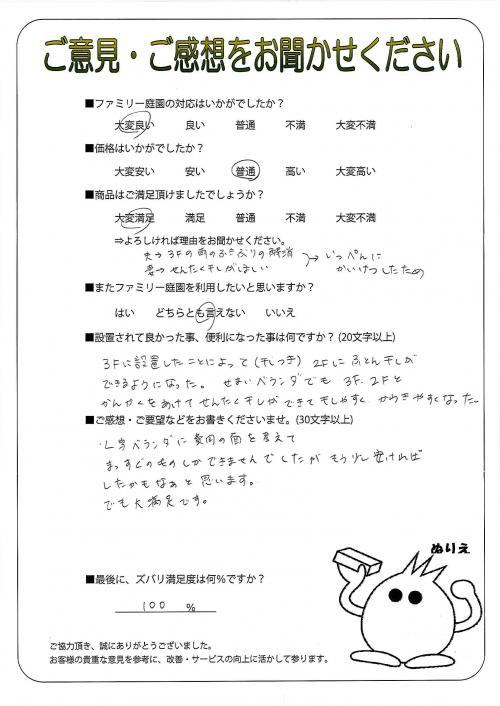 ご意見・ご感想をお聞かせください
■ファミリー庭園の対応はいかがでしたか？
大変良い 良い 普通 不満 大変不満
■価格はいかがでしたか？
大変安い 安い 普通 高い 大変高い
■商品はご満足頂けましたでしょうか？
大変満足 満足 普通 不満 大変不満
⇒よろしければ理由をお聞かせください。
夫→3Fの雨のふきぶりの解消
妻→せんたく干しがほしい
→いっぺんに
かいけつしたため
■またファミリー庭園を利用したいと思いますか？
はい どちらとも言えない いいえ
■設置されて良かった事、便利になった事は何ですか？(20文字以上)
3Fに設置したことによって(干しつき) 2Fにふとん干しが
できるようになった。 せまいベランダでも 3F、2Fと
かんかくをあけてせんたく干しができて干しやすく かわきやすくなった
■ご感想・ご要望などをお書きくださいませ。(30文字以上)
・L字ベランダに費用の面を考えて
まっすぐのものしかできませんでしたが もう少し安ければ
したかもなぁと思います。
でも大満足です。
ぬりえ
■最後に、ズバリ満足度は何%ですか？
100 %
ご協力頂き、誠にありがとうございました。
お客様の貴重な意見を参考に、改善・サービスの向上に活かして参ります。